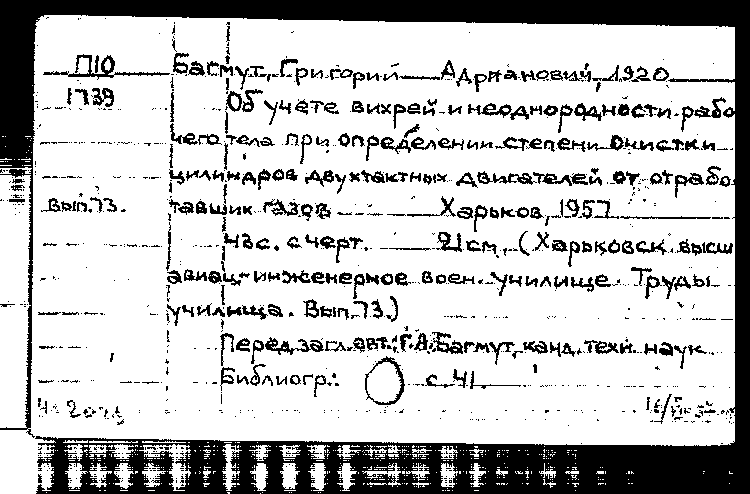 П10 Багмут, Григорий Адрианович, 1920
1739 Об учете вихрей и неоднородности рабо
чего тела при определении степени очистки
цилиндров двухтактных двигателей от отрабо
вып.73. тавших газов Харьков, 1957
43с. с черт. 21см. (Харьковск. высш
авиац.-инженерное воен. училище. Труды
училища. Вып.73.)
Перед загл. авт.: Г.А.Багмут, канд. техн. наук
Библиогр.: с.41.